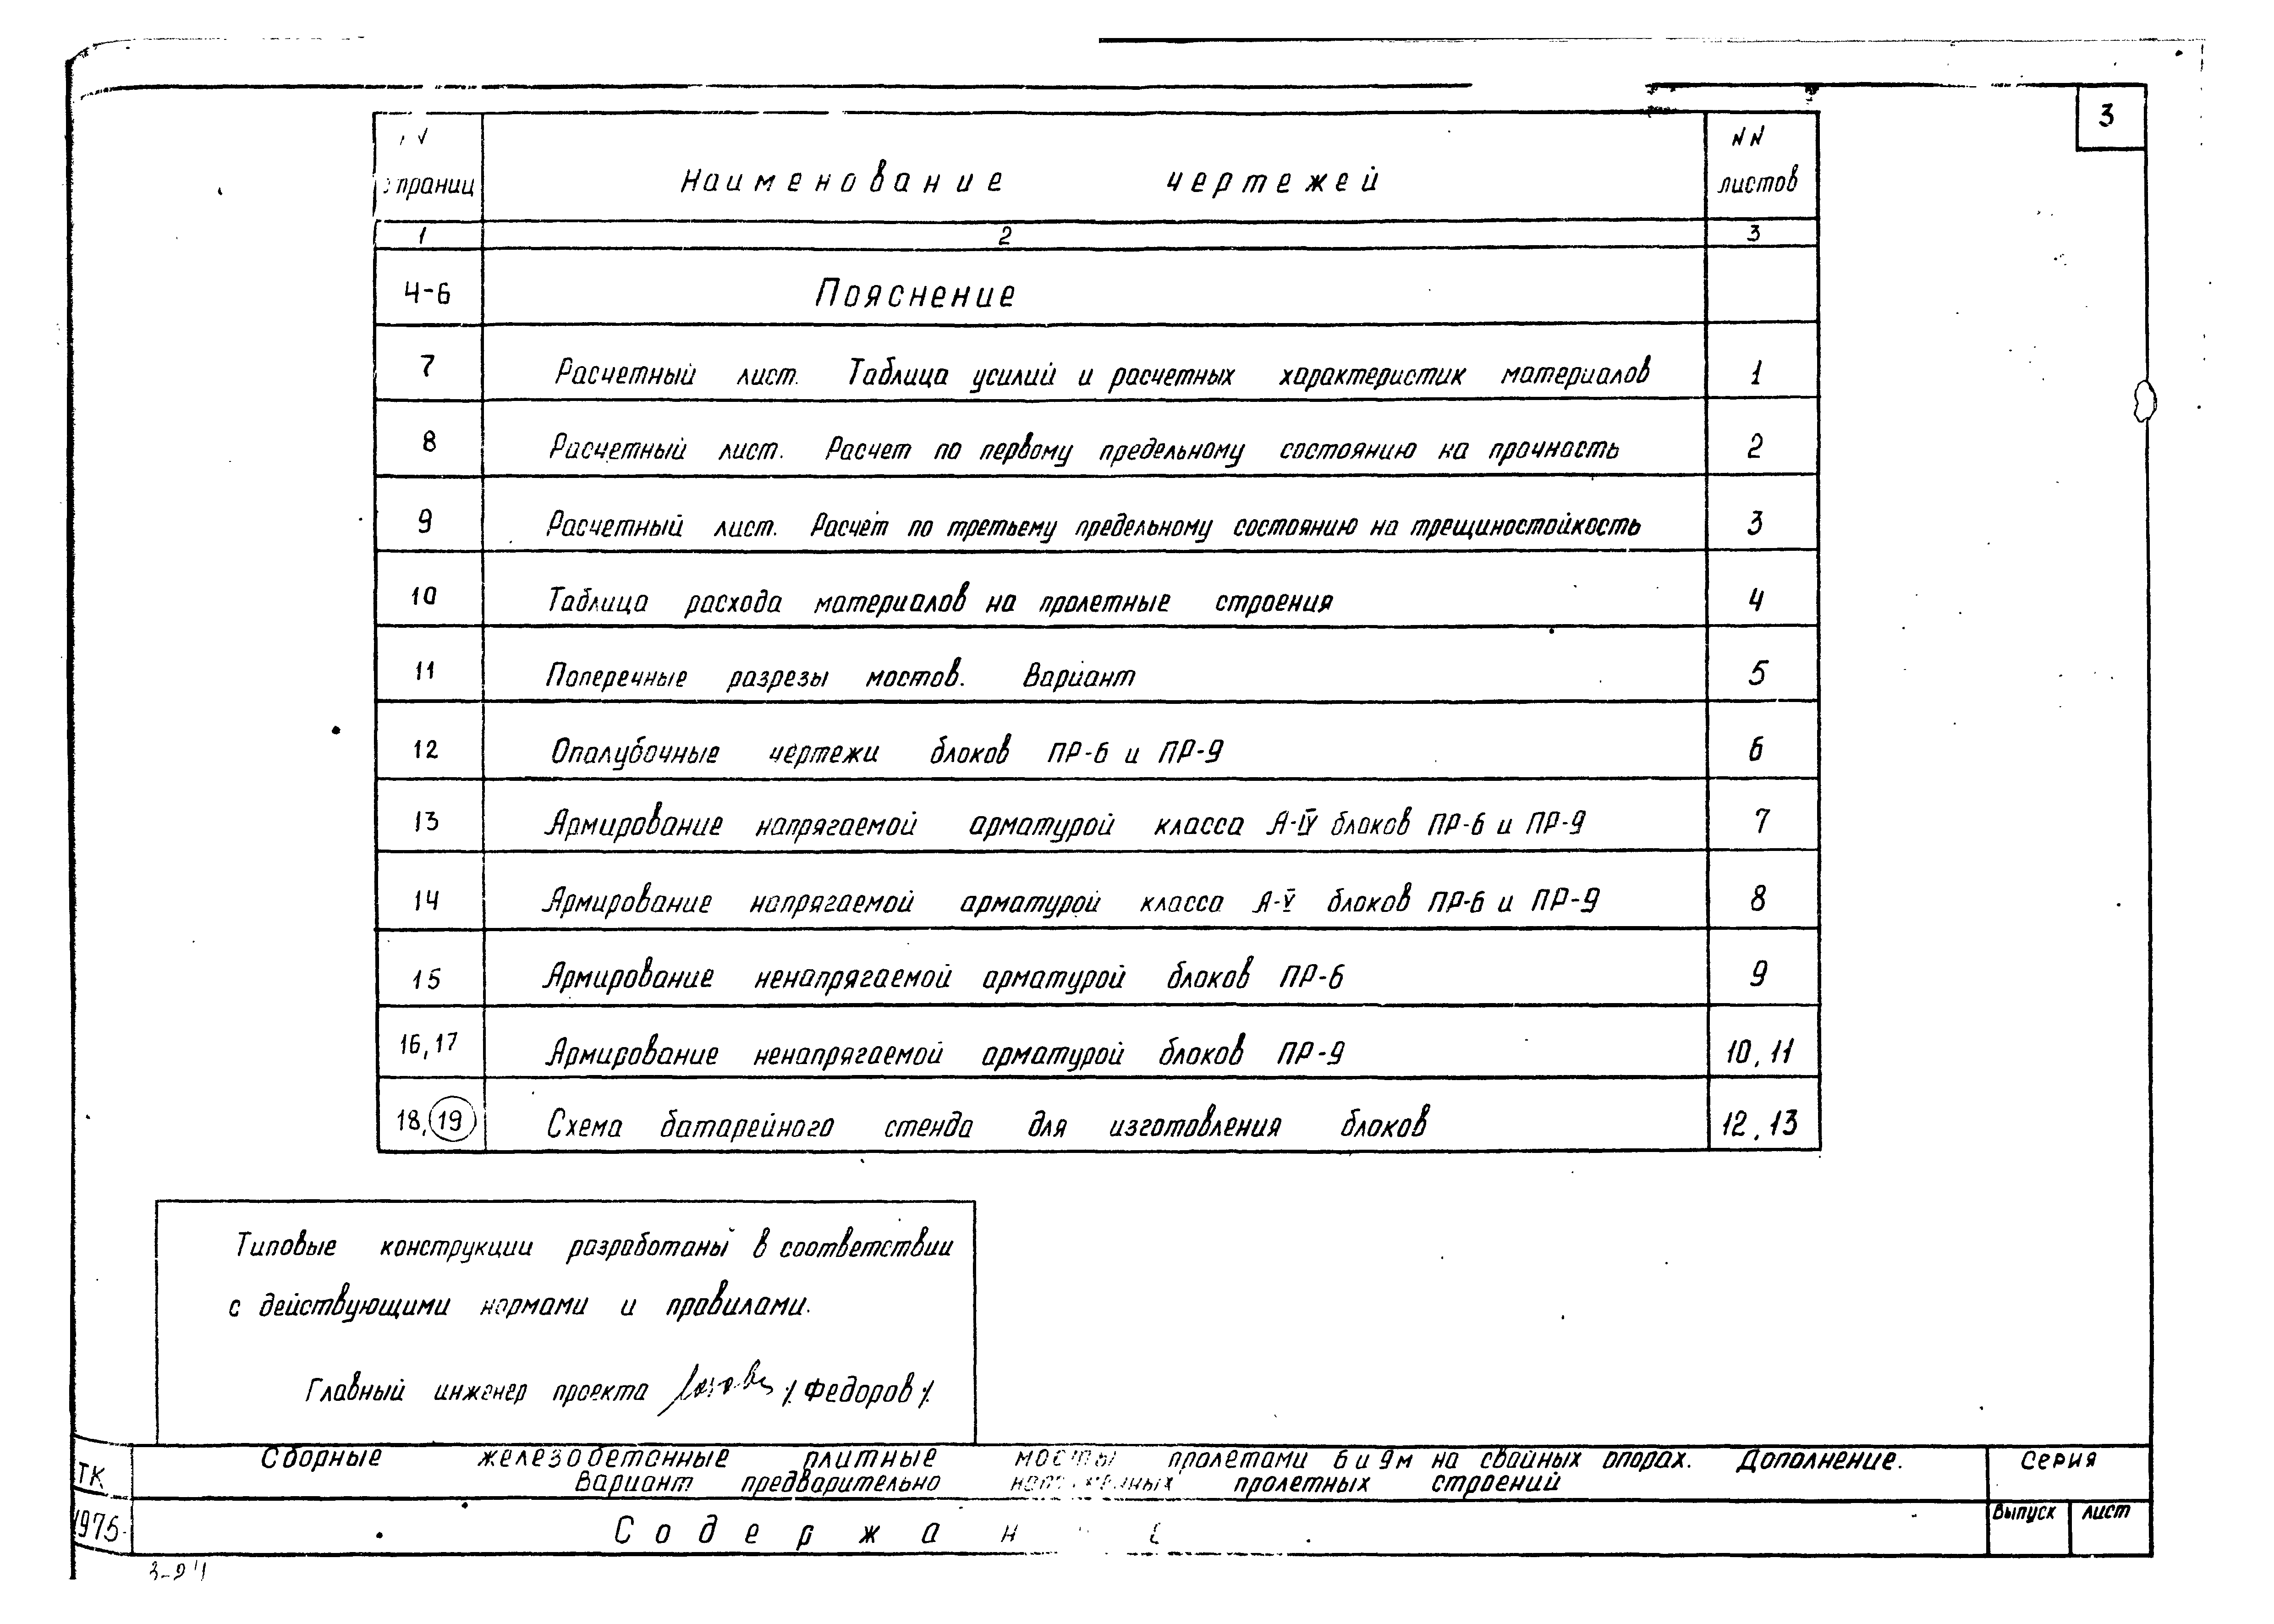 3
страниц Наименование чертежей NN листов
1 2 3
4-6 Пояснение
7 Расчетный лист. Таблица усилий и расчетных характеристик материалов 1
8 Расчетный лист. Расчет по первому предельному состоянию на прочность 2
9 Расчетный лист. Расчет по третьему предельному состоянию на трещиностойкость 3
10 Таблица расхода материалов на пролетные строения 4
11 Поперечные разрезы мостов. Вариант 5
12 Опалубочные чертежи блоков ПР-6 и ПР-9 6
13 Армирование напрягаемой арматурой класса А-IV блоков ПР-6 и ПР-9 7
14 Армирование напрягаемой арматурой класса А-V блоков ПР-6 и ПР-9 8
15 Армирование ненапрягаемой арматурой блоков ПР-6 9
16,17 Армирование ненапрягаемой арматурой блоков ПР-9 10,11
18,19 Схема батарейного стенда для изготовления блоков 12,13
Типовые конструкции разработаны в соответствии
с действующими нормами и правилами.
Главный инженер проекта /Федоров/.
ТК Сборные железобетонные плитные мосты пролетами 6 и 9м на свайных опорах. Дополнение. Серия
Вариант предварительно напряженных пролетных строений
1975 Содержан Выпуск Лист